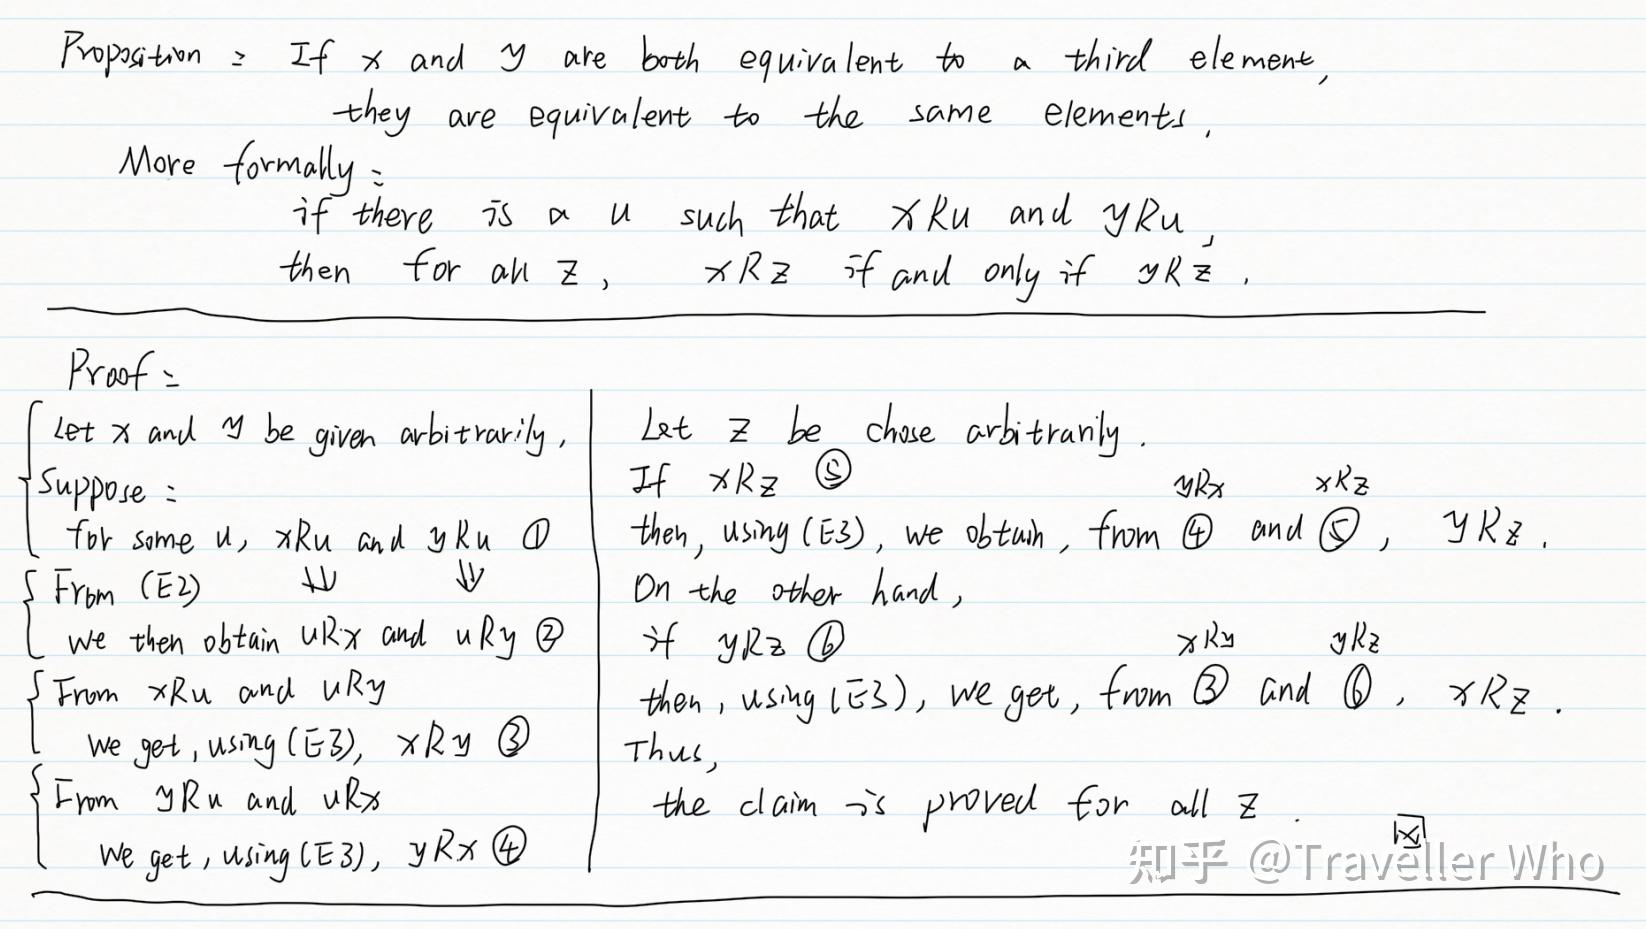 Proposition : If x and y are both equivalent to a third element,
they are equivalent to the same elements.
More formally :
if there is a u such that xRu and yRu,
then for all z, xRz if and only if yRz.
Proof :
Let x and y be given arbitrarily,
Suppose :
for some u, xRu and yRu ①
⇓ ⇓
From (E2)
we then obtain uRx and uRy ②
From xRu and uRy
we get, using (E3), xRy ③
From yRu and uRx
we get, using (E3), yRx ④
Let z be chose arbitrarily.
If xRz ⑤
yRx xRz
then, using (E3), we obtain, from ④ and ⑤, yRz.
On the other hand,
if yRz ⑥
xRy yRz
then, using (E3), we get, from ③ and ⑥, xRz.
Thus,
the claim is proved for all z.
知乎 @Traveller Who